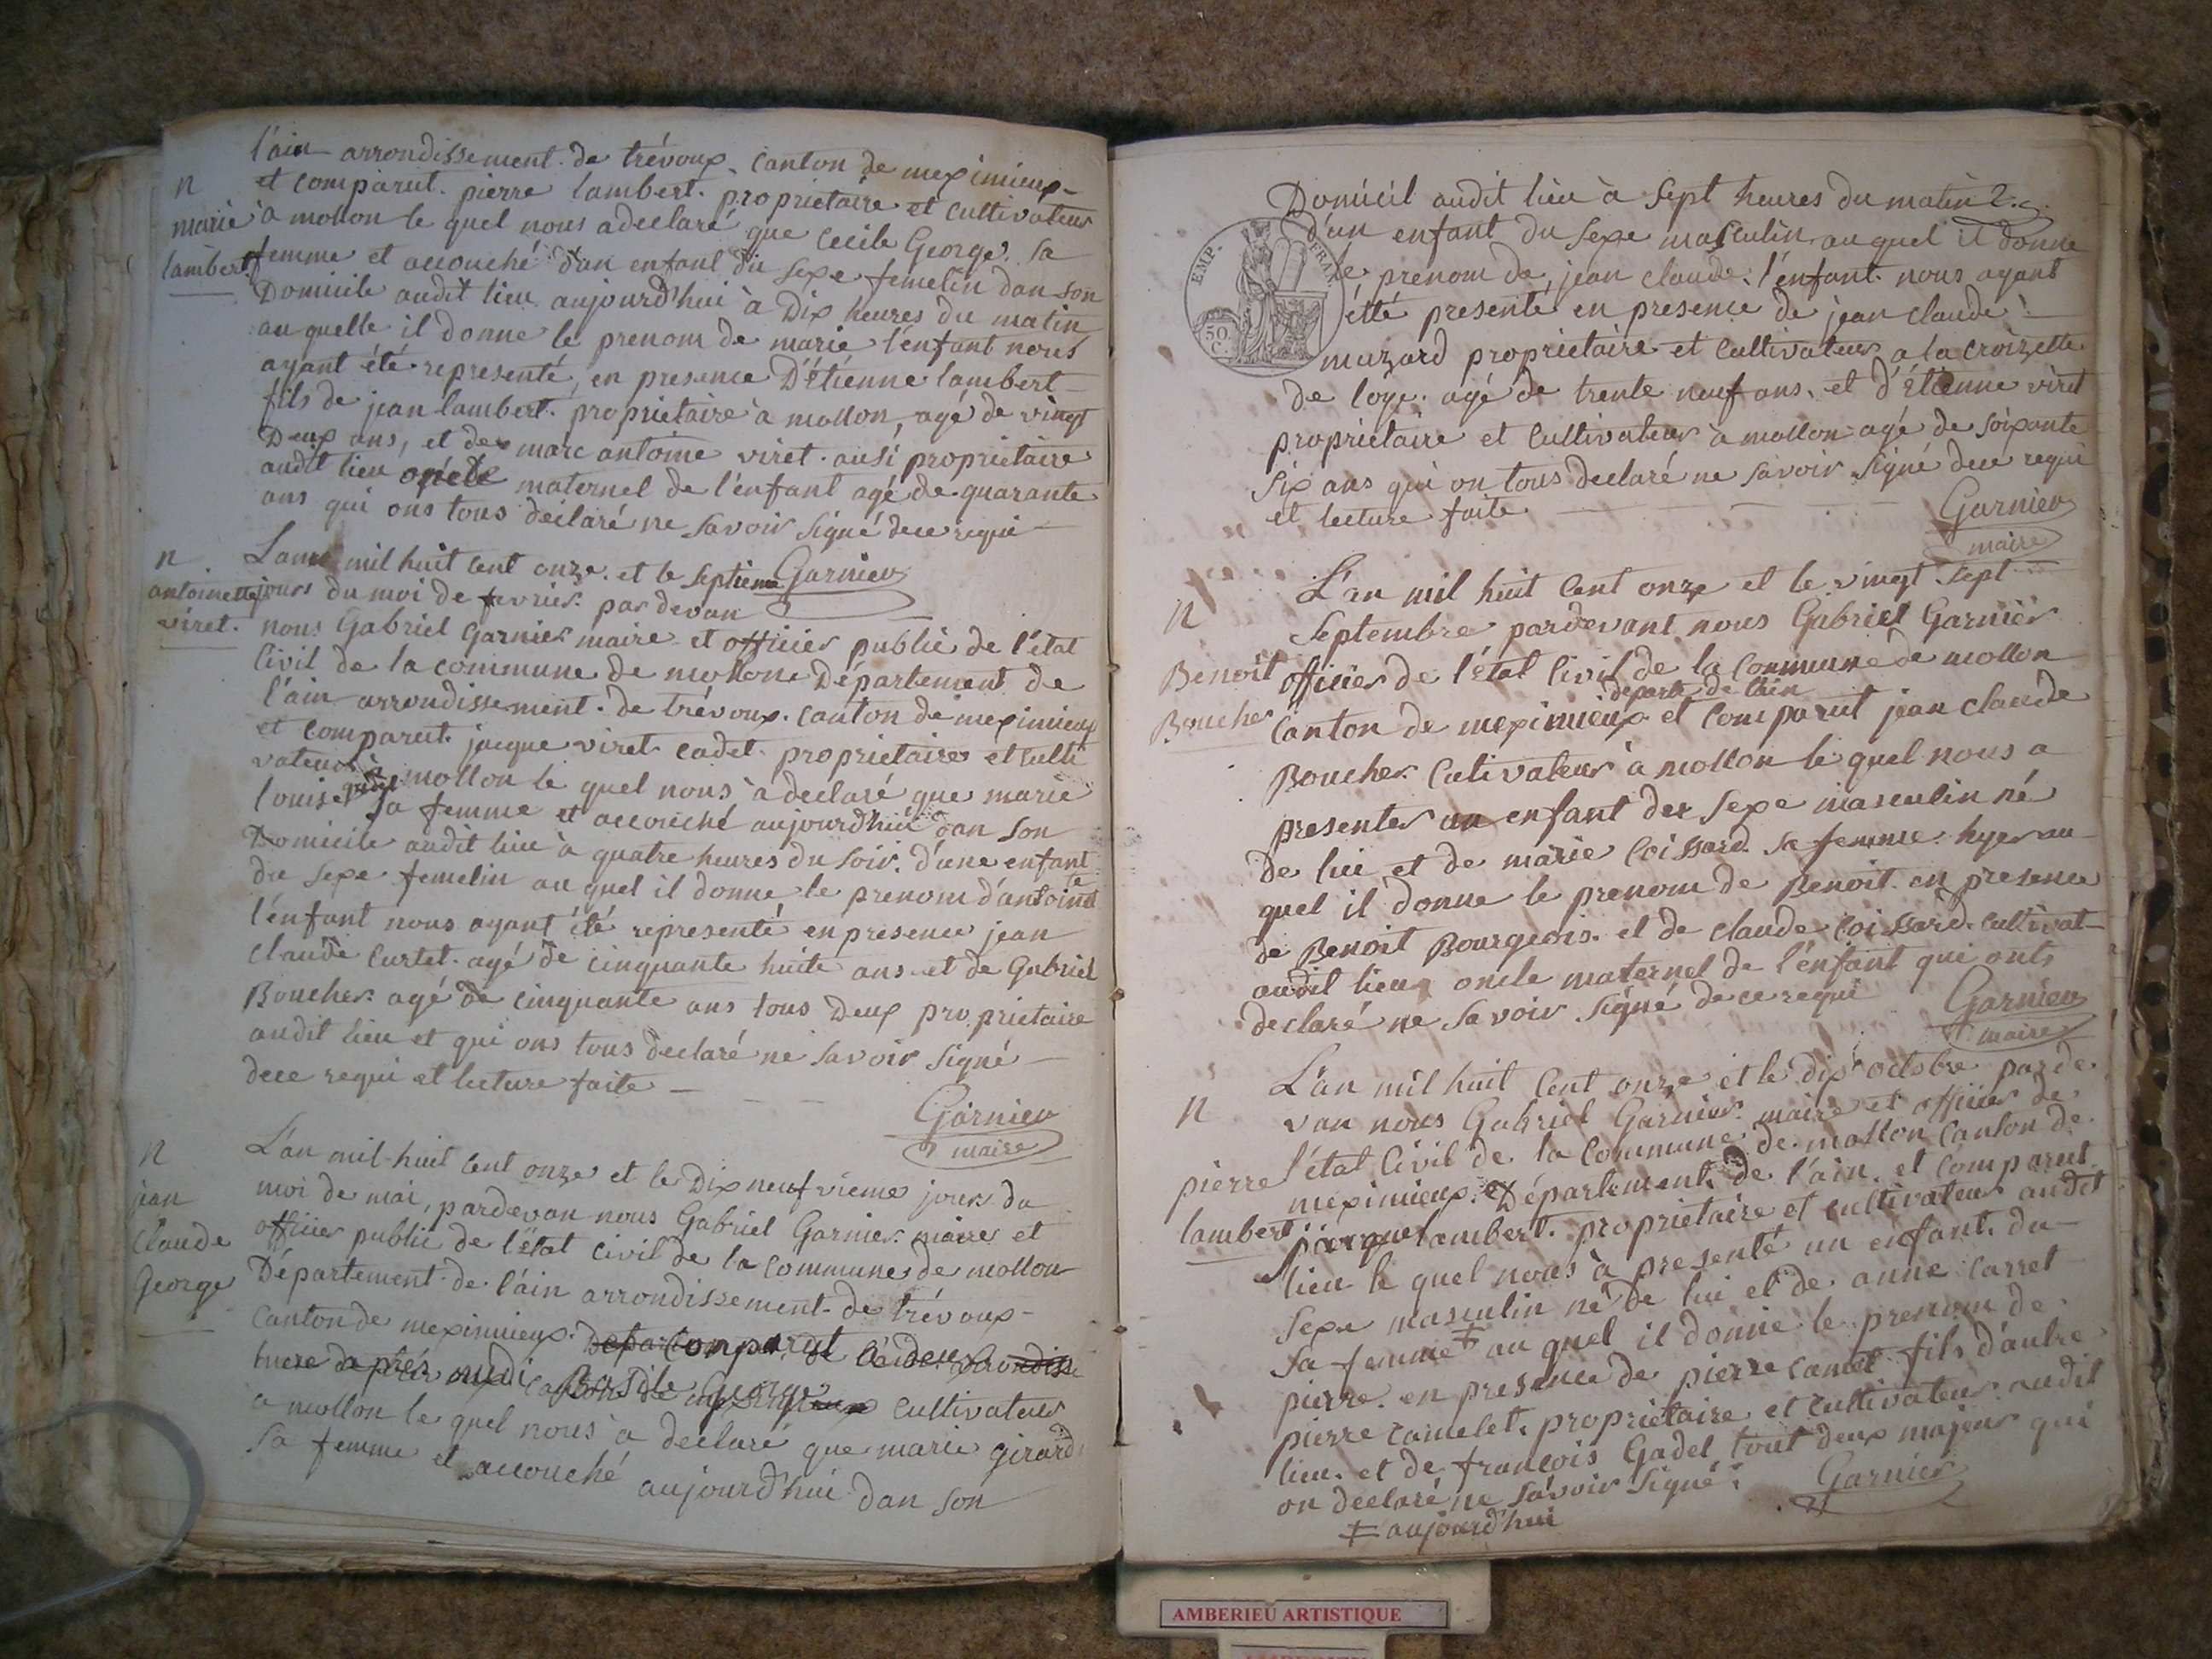 l'ain arrondissement de trévoux canton de meximieux
et comparut pierre lambert propriétaire et cultivateur
n
marie
lambert
à mollon le quel nous a declaré que cecile George sa
femme et accouché d'un enfant du sexe femelin dan son
Domicile audit lieu aujourd'hui à Dix heures du matin
au quelle il donne le prenom de marie l'enfant nous
ayant été representé, en presence D'étienne lambert
fils de jean lambert propriétaire à mollon, agé de vingt
Deux ans, et de marc antoine viret ausi propriétaire
audit lieu oncle maternel de l'enfant agé de quarante
ans qui ons tous declaré ne savoir signé de ce requi
Garnier
n
antoinette
viret.
L'ans mil huit cent onze et le septieme
jours du moi de fevrier par devan
nous Gabriel Garnier maire et officier public de l'état
Civil de la commune de mollon Département de
l'ain arrondissement de trévoux canton de meximieux
et comparut jacque viret cadet propriétaires et culti
vateur à mollon le quel nous a declaré que marie
louise sa femme et accouché aujourd'hui dan son
Domicile audit lieu à quatre heures du soir d'une enfant
du sexe femelin au quel il donne le prenom d'antoinette
l'enfant nous ayant été representé en presence jean
claude curtet agé de cinquante huite ans et de Gabriel
Boucher agé de cinquante ans tous Deux propriétaire
audit lieu et qui ons tous declaré ne savoir signé
de ce requi et lecture faite
Garnier
maire
n
jean
claude
George
L'an mil huit cent onze et le Dix neufvieme jours du
moi de mai, pardevan nous Gabriel Garnier maire et
officier public de l'état civil de la commune de mollon
Département de l'ain arrondissement de trévoux
Canton de meximieux comparut à deux
huere de près midi Basile George cultivateur
a mollon le quel nous a declaré que marie girard
sa femme et accouché aujourd'hui dan son
Domicil audit lieu à sept heures du matin
d'un enfant du sexe masculin au quel il donne
le prenom de jean claude l'enfant nous ayant
été presenté en presence de jean claude
EMP. FRAN.
50
C.
muzard propriétaire et cultivateur a la croizette
de loye agé de trente neuf ans, et d'Étienne viret
propriétaire et cultivateur à mollon agé de soixante
six ans qui on tous declaré ne savoir signé de ce requi
et lecture faite
Garnier
maire
n
Benoit
Boucher
L'an mil huit cent onze et le vingt sept
Septembre pardevant nous Gabriel Garnier
officier de l'état Civil de la Commune de mollon
departe de l'ain
Canton de meximieux et comparut jean claude
Boucher Cultivateur à mollon le quel nous a
presenter un enfant der sexe masculin né
de lui et de marie Coissard sa femme hyer au
quel il donne le prenom de Benoit en presence
de Benoit Bourgeois et de claude Coissard cultivat
audit lieu oncle maternel de l'enfant qui onts
declaré ne savoir signé de ce requi
Garnier
maire
n
pierre
lambert
L'an mil huit Cent onze et le dix octobre parde
van nous Gabriel Garnier maire et officier de
l'état Civil de la Commune de mollon Canton de
meximieux Département de l'ain et comparut
lambert propriétaire et cultivateur audit
lieu le quel nous à presenté un enfant du
sexe masculin né de lui et de anne carret
sa femme ‡ au quel il donne le prenom de
pierre en presence de pierre camet fils d'autre
pierre camelet propriétaire et cultivateur audit
lieu et de francois Gadel tout deux majeur qui
on declaré ne savoir signé
Garnier
‡ aujourd'hui
AMBERIEU ARTISTIQUE